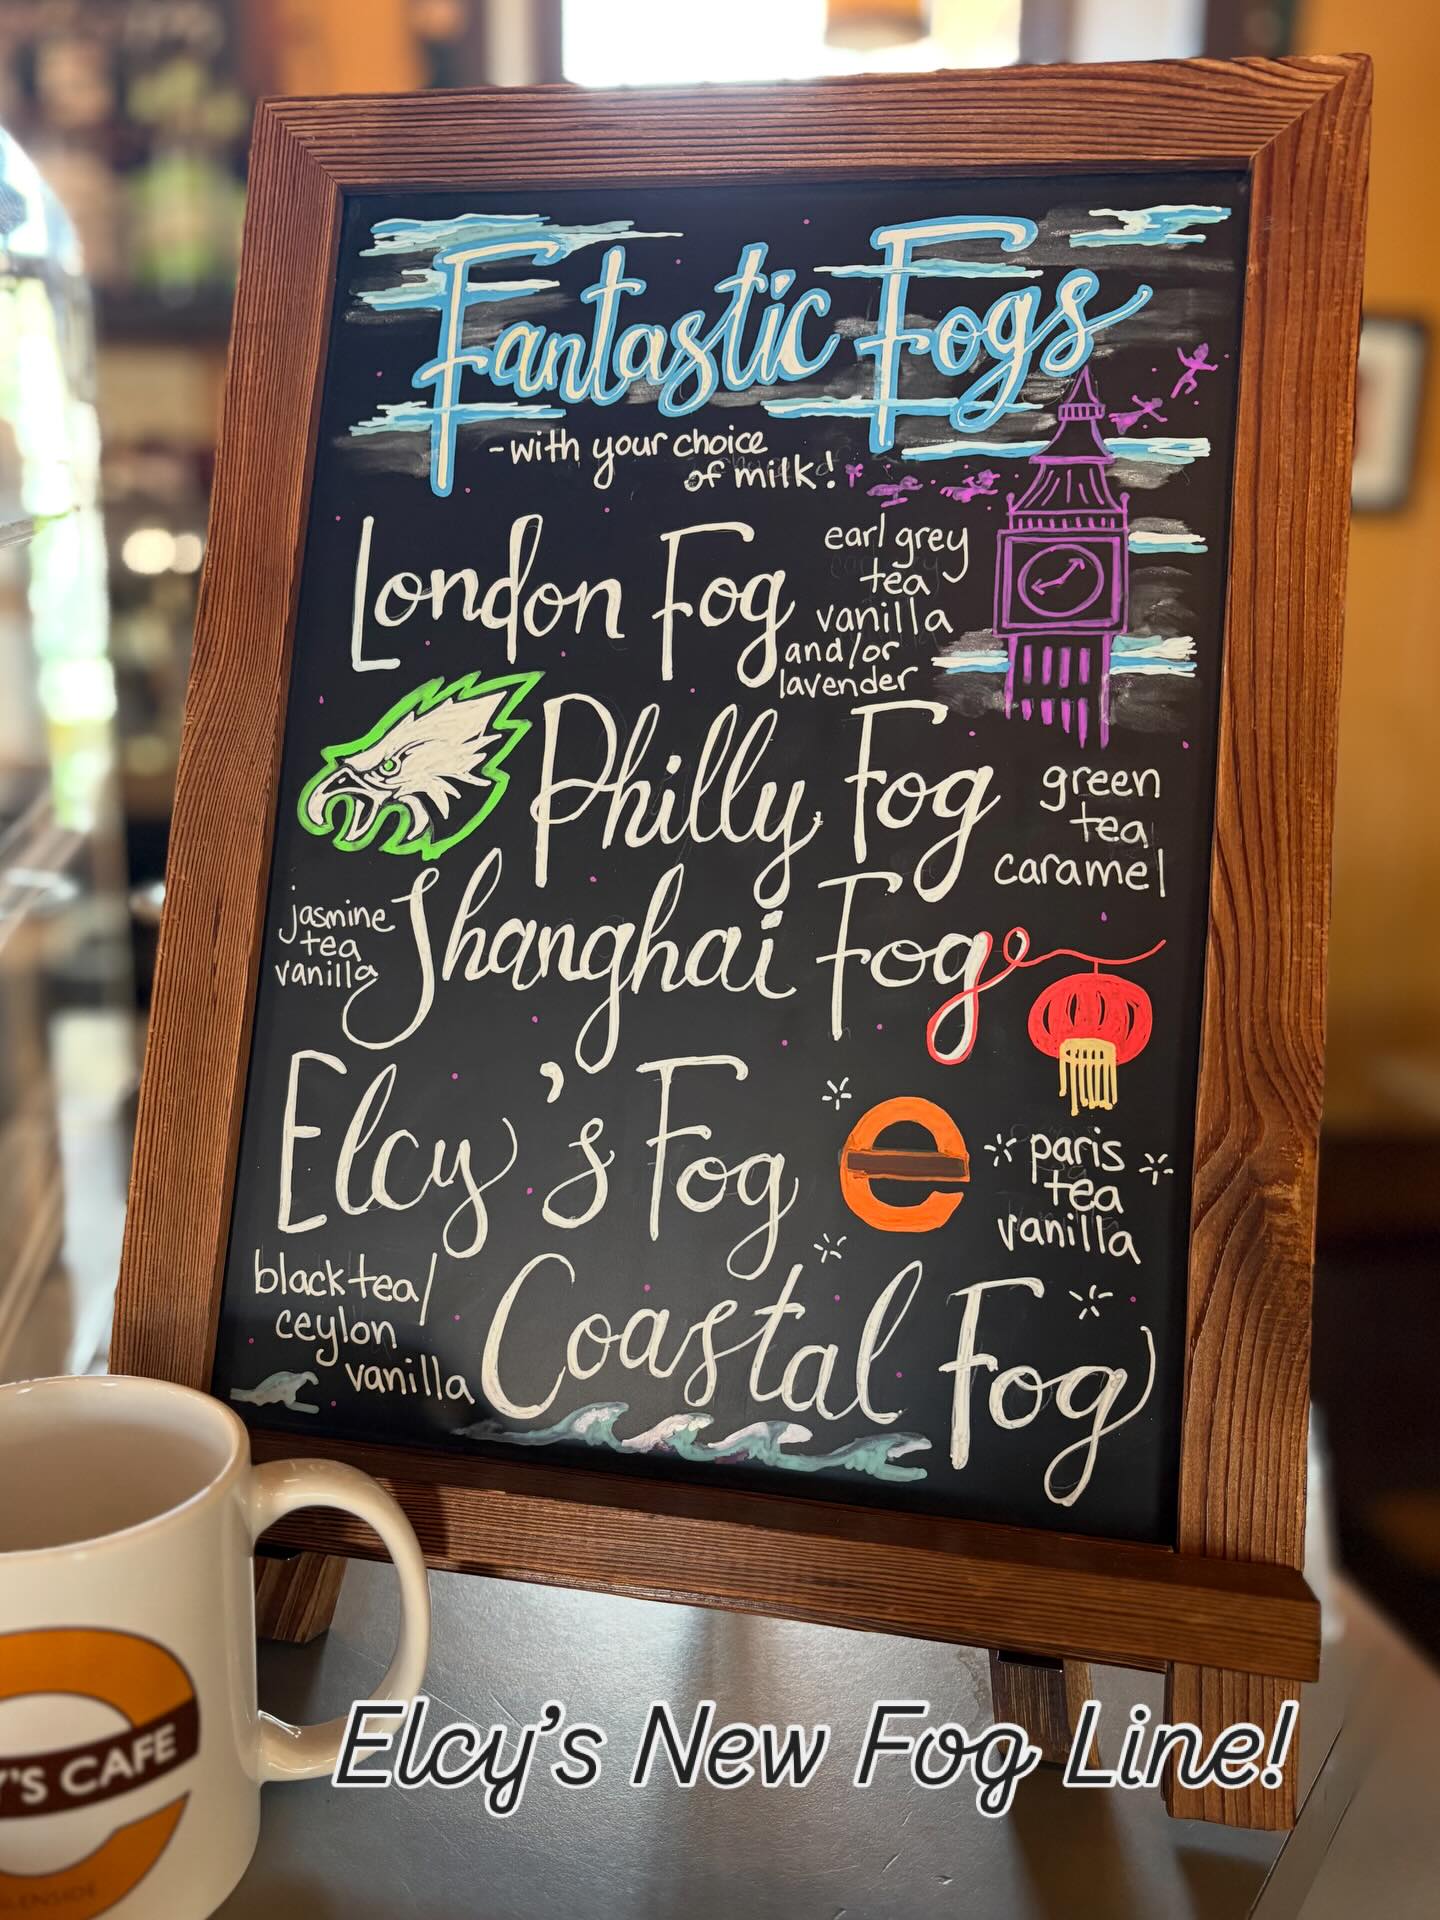 Fantastic Fogs
-with your choice
of milk!
London Fog
earl grey
tea
vanilla
and/or
lavender
Philly Fog
green
tea
caramel
jasmine
tea
vanilla
Shanghai Fog
Elcy's Fog
e
paris
tea
vanilla
black tea/
ceylon
vanilla
Coastal Fog
Y'S CAFE
GLENSIDE
Elcy's New Fog Line!